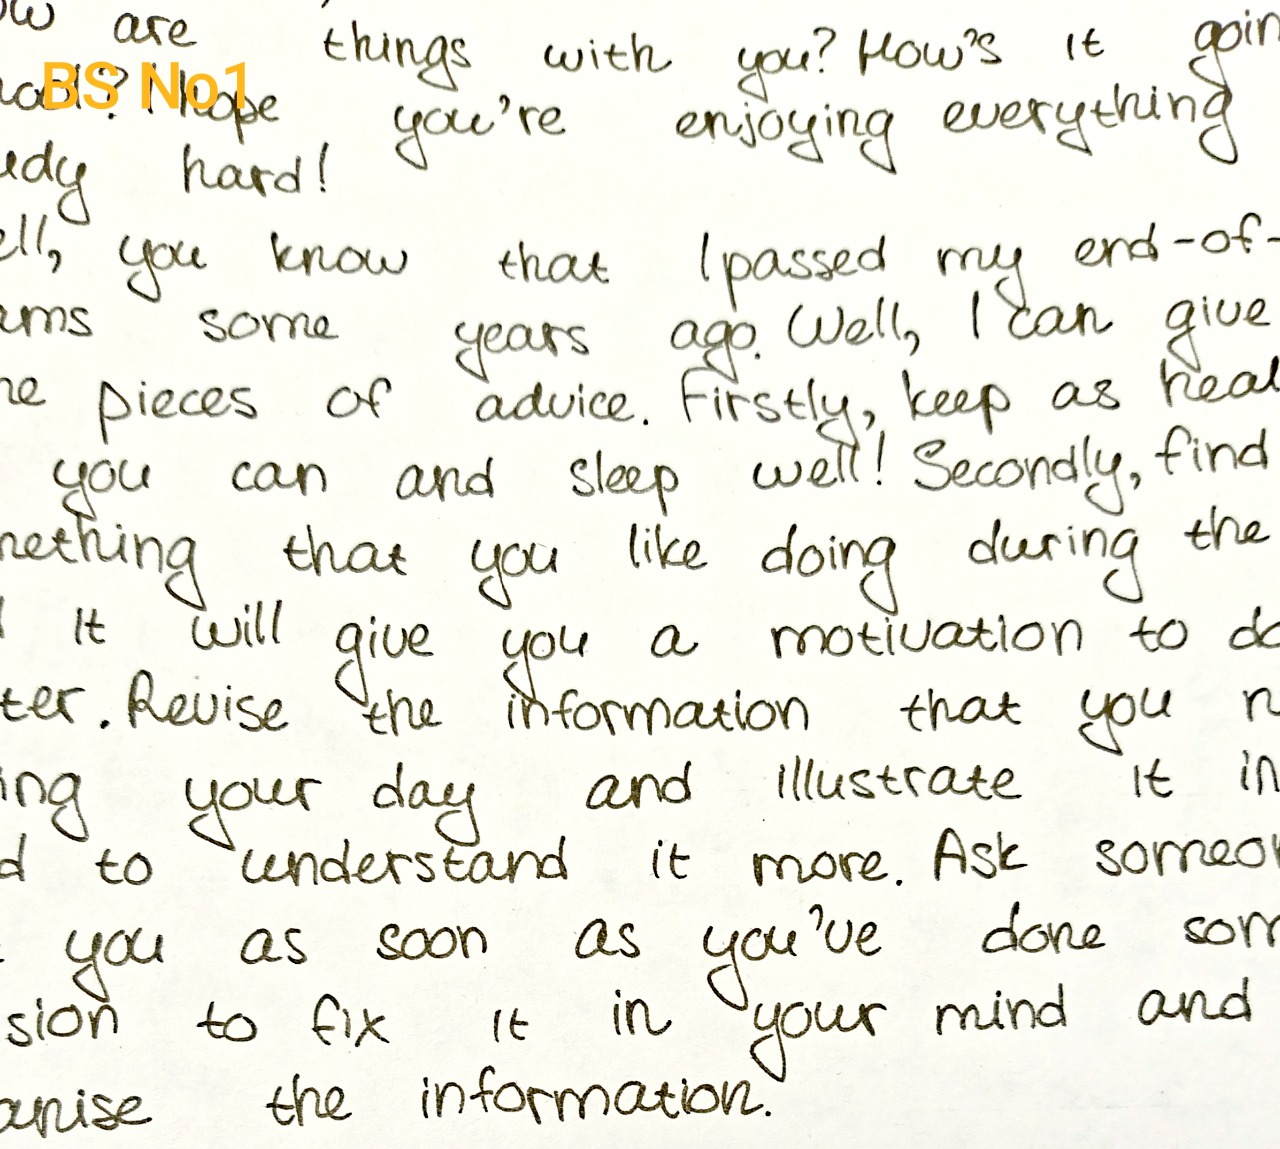 are things with you? How's it
BS No1
hope you're enjoying everything
hard!
you know that I passed my end-of-
some years ago. Well, I can give
pieces of advice. Firstly, keep as
you can and sleep well! Secondly, find
that you like doing during the
It will give you a motivation to
Revise the information that you
your day and illustrate it in
to understand it more. Ask
you as soon as you've done
to fix it in your mind and
the information.